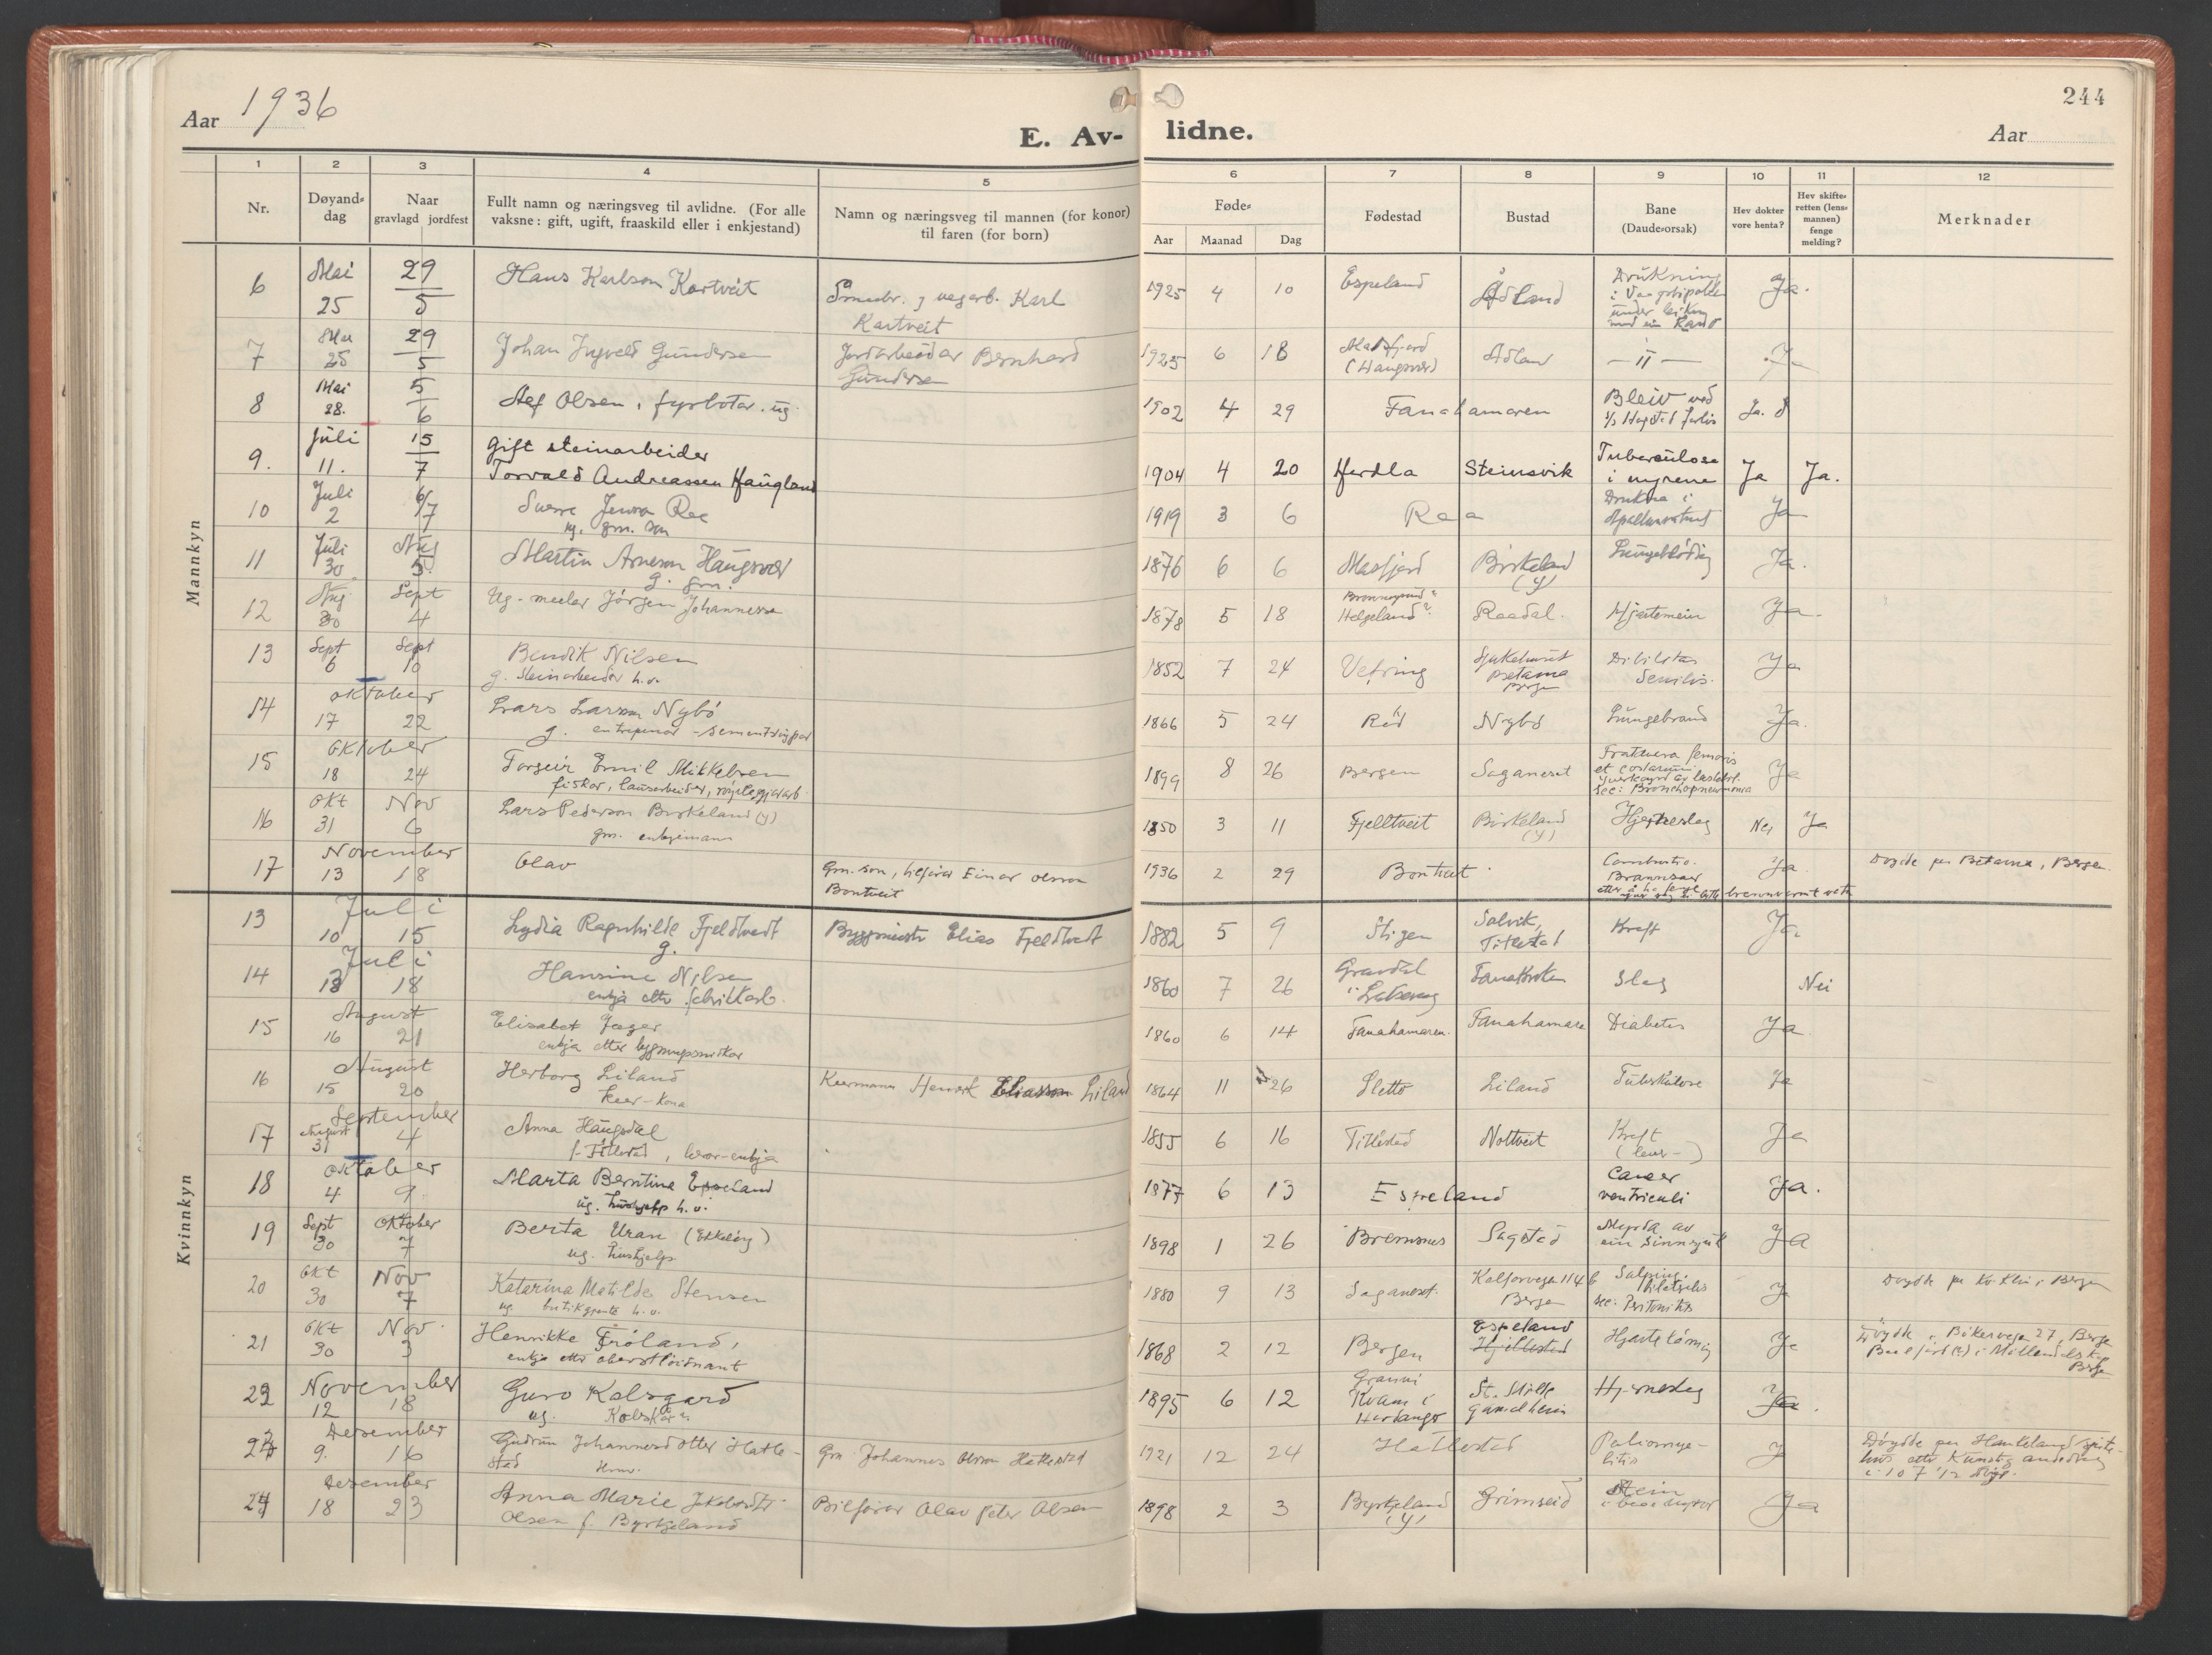 Aar 1936
E. Av-
lidne.
Aar
244
1 2 3 4 5
6 7 8 9 10 11 12
Nr.
Døyand-
dag
Naar
gravlagd jordfest
Fullt namn og næringsveg til avlidne. (For alle
vaksne: gift, ugift, fraaskild eller i enkjestand)
Namn og næringsveg til mannen (for konor)
til faren (for born)
Føde-
Aar Maanad Dag
Fødestad
Bustad
Bane
(Daude-orsak)
Hev dokter
vore henta?
Hev skifte-
retten (lens-
mannen)
fenge
melding?
Merknader
Mannkyn
6 Mai 25 29/5 Hans Karlson Kartveit Karl
Kartveit 1925 4 10 Espeland Ådland Drukning Ja.
7 Mai 25 29/5 Johan Ingvald Gundersen Jordarbeidar Bernhard
Gundersen 1925 6 18 Masfjord
(Haugsvær) Ådland — 〃 — Ja
8 Mai 28. 5/6 Alf Olsen, fyrbøtar. ug. 1902 4 29 Fanahamaren Bleiv ved Ja.
9. Juli 11. 15/7 gift steinarbeider
Torvald Andreassen Haugland 1904 4 20 Herdla Steinsvik Tuberculose
i nyrene Ja Ja.
10 Juli 2 6/7 Sverre Raa
ug. grm. son 1919 3 6 Raa Drukna i Ja
11 Juli 30 Aug 5 Martin Arneson Haugsvær
g. grm. 1876 6 6 Masfjord Birkeland
(y) Lungebløding Ja.
12 Aug 30 Sept 4 Ug. Jørgen Johannessen 1878 5 18 Helgeland? Raadal. Hjartemein Ja.
13 Sept 6 Sept 10 Bendik Nilsen
g. Steinarbeider h.v. 1852 7 24 Vefring Sjukehuset
Betania
Bergen Senilis. Ja
14 oktober 17 22 Lars Larson Nybø
g. 1866 5 24 Rød Nybø Lungebrand Ja.
15 Oktober 18 24 Torgeir Emil Mikkelsen
fiskar, lausarbeider, 1899 8 26 Bergen Saganeset femoris
et costarum
sec: Bronchopneumonia Ja
16 Okt 31 Nov 6 Lars Pederson Birkeland (y)
grm. enkjemann 1850 3 11 Fjelltveit Birkeland
(y) Hjerneslag Nei Ja
17 November 13 18 Olav Grm. son, bilførar Einar Olsson
Bontveit 1936 2 29 Bontveit Combustio.
Brannsaar Ja. Døydde paa Betania, Bergen.
Kvinnkyn
13 Juli 10 15 Lydia Ragnhilde Fjeldtvedt
g. Byggmeister Elias Fjeldtvedt 1882 5 9 Stigen Salvik,
Titlestad Kreft Ja
14 Juli 13 18 Hansine Nilsen
enkja etter fabrikkarb. 1860 7 26 Gravdal
i Laksevaag Slag Nei
15 August 16 21 Elisabet Jæger
enkja etter bygningssnikkar 1860 6 14 Fanahamaren. Fanahamaren Diabetes Ja
16 August 15 20 Herborg Liland
kaar-kona Kaarmann Henrik Eliasson Liland 1864 11 26 Sletto Liland Tuberkulose Ja
17 August 31 September 4 Anna Haugsdal
f. Titlestad, kaar-enkja 1855 6 16 Titlestad Nottveit Kreft
(lever-) Ja
18 oktober 4 9. Marta Berntine Espeland
ug. hushjelp h.v. 1877 6 13 Espeland Cancer
ventriculi Ja.
19 Sept 30 Oktober 7 Berta Uran
ug. hushjelp 1898 1 26 Bremsnes Sagstad Myrda av
ein sinnsjuk Ja
20 Okt 30 Nov 7 Katarina Matilde Stensen
ug. butikgjente h.v. 1880 9 13 Saganeset. Kalfarvegen 114 b
Bergen
sec. Peritonitis Ja Døydde paa Kv. klin. i Bergen
21 Okt 30 Nov. 3 Henrikke Frøland,
enkja etter oberstløitnant 1868 2 12 Bergen Espeland
Hjellestad Hjartelaming Ja Døydde i 27, Bergen
Baalferd i Møllendalskap.
Bergen
22 November 12 18 Guro Kolsgard
ug. 1895 6 12 Kvam i
Hardanger Hjerneslag Ja.
23 Desember 9. 16 Gudrun Johannesdotter Hatle-
stad Grm Johannes Olsson Hatlestad 1921 12 24 Hatlestad Poliomye-
litis Ja Døydde paa Haukeland sjuke-
hus etter kunstig andedrag
24 Desember 18 23 Anna Marie Jakobsdtr.
Olsen f. Byrkjeland Bilførar Olav Peter Olsen 1898 2 3 Byrkjeland
(y) Grimseid Stein Ja